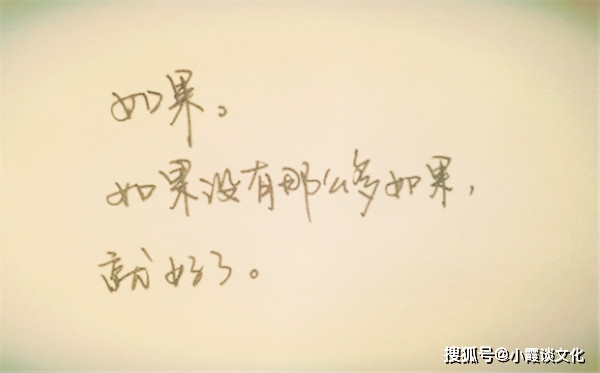 如果。
如果没有那么多如果，
就好了。
搜狐号@小霞谈文化